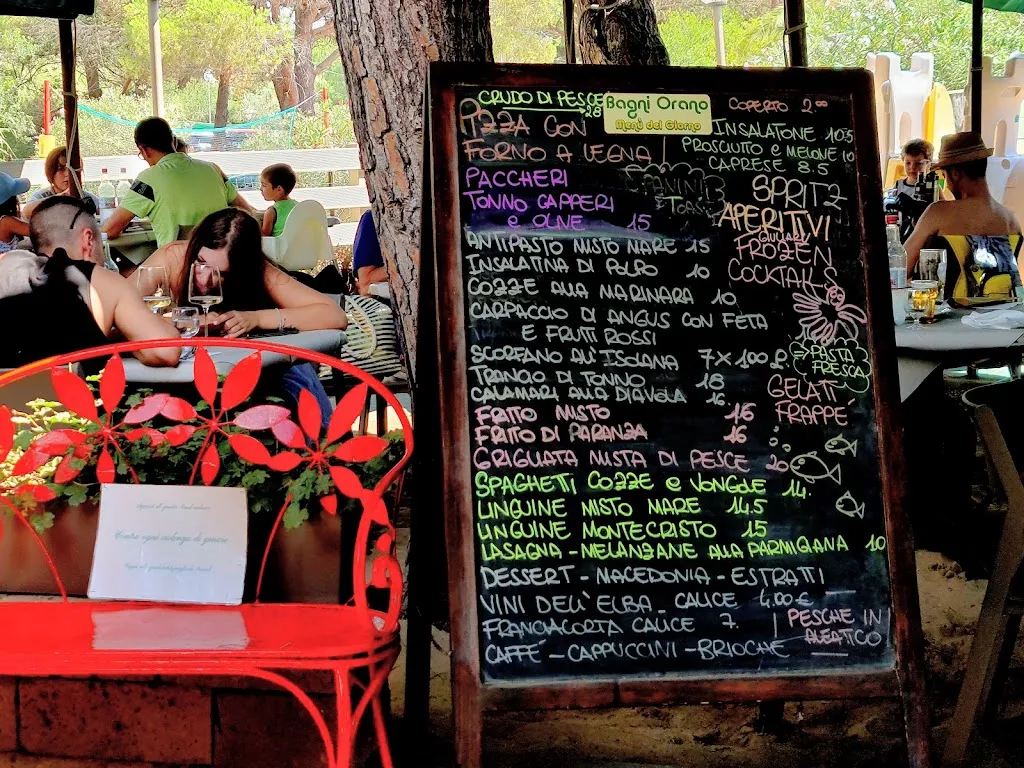 CRUDO DI PESCE 28
Bagni Orano
Menù del Giorno
COPERTO 2.00
PIZZA CON
FORNO A LEGNA
INSALATONE 10.5
PROSCIUTO e MELONE 10
CAPRESE 8.5
PANINI
TOAST
SPRITZ
APERITIVI
FROZEN
COCKTAILS
PACCHERI
TONNO CAPPERI
e OLIVE 15
ANTIPASTO MISTO MARE 15
INSALATINA DI POLPO 10
COZZE ALLA MARINARA 10
CARPACCIO DI ANGUS CON FETA
E FRUTTI ROSSI
SCORFANO ALL'ISOLANA 7 x 100 g.
TRANCIO DI TONNO 18
CALAMARI ALLA DIAVOLA 16
PASTA
FRESCA
GELATI
FRAPPÉ
FRITTO MISTO 16
FRITTO DI PARANZA 16
GRIGLIATA MISTA DI PESCE 20
SPAGHETTI COZZE e VONGOLE 14.
LINGUINE MISTO MARE 14.5
LINGUINE MONTECRISTO 15
LASAGNA - MELANZANE ALLA PARMIGIANA 10
DESSERT - MACEDONIA - ESTRATTI
VINI DELL'ELBA - CALICE 4.00€
FRANCIACORTA CALICE 7.
PESCHE IN
ALEATICO
CAFFÈ - CAPPUCCINI - BRIOCHE
Contro ogni violenza di genere